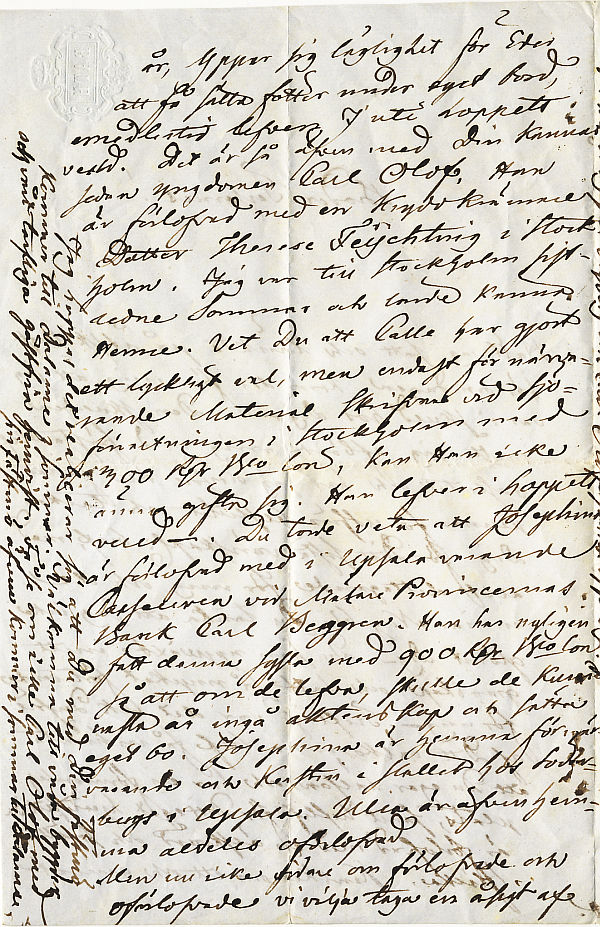 är, yppar sig läglighet för Eder
att få sätta fötter under eget bord,
emedlertid lefven I uti hoppets
verld. Det är så äfven med Din kamrat
sedan ungdomen Carl Olof. Han
är förlofvad med en Krydokrämare
Dotter Therese Feychting i Stock-
holm. Jag var till Stockholm sist-
ledne Sommar och lärde känna
Henne. Vet Du att Calle har gjort
ett lyckligt val, men endast för närva-
rande Material Skrifvare vid Sjö-
förvaltningen i Stockholm med
300 Rdr Bco lön, kan Han icke
ännu gifta sig. Han lefver i hoppets
vereld. Du torde veta att Josephina
är förlofvad med i Upsala varande
Cassören vid Mälare Provincernas
Bank Carl Berggren. Han har nyligen
fått denna sysla med 900 Rdr Bco lön
så att om de lefva, skulle de kunna
nästa år ingå äktenskap och sätta
eget bo. Josephina är hemma för när-
varande och Kerstin i stället hos Söder-
bergs i Upsala. Ulla är äfven hem-
ma aldeles oförlofvad
Men nu icke vidare om förlofvade och
oförlofvade vi vilja taga en åsigt af
Jag hoppas, det realiserar sig att du med din
kommer till Dalarne i sommar. Välkomna till
och vårt torftiga gästfria hemvist, vore om icke Carl Olof med
sin fästmö äfven kommer i sommar till Dalarne,